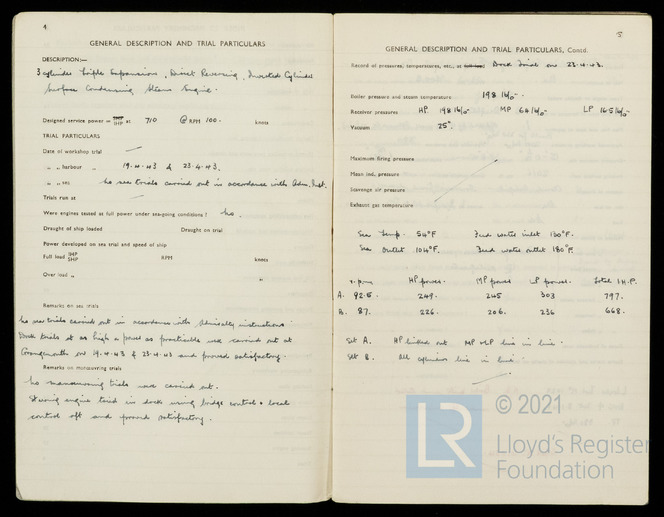 4
GENERAL DESCRIPTION AND TRIAL PARTICULARS
DESCRIPTION:—
3 cylinder Triple Expansion, Direct Reversing, Inverted Cylinder
Surface Condensing Steam Engine.
Designed service power = IHP at 710 @ RPM 100. knots
TRIAL PARTICULARS
Date of workshop trial —
„ „ harbour „ 19.4.43 & 23.4.43.
„ „ sea no sea trials carried out in accordance with Adm. Inst.
Trials run at —
Were engines tested at full power under sea-going conditions? No.
Draught of ship loaded Draught on trial
Power developed on sea trial and speed of ship
Full load IHP SHP RPM knots
Over load „ „
Remarks on sea trials
No sea trials carried out in accordance with Admiralty instructions.
Dock trials at as high a power as practicable were carried out at
Grangemouth on 19.4.43 & 23.4.43 and proved satisfactory.
Remarks on manœuvring trials
No manœuvring trials were carried out.
Steering engine tried in dock using bridge control & local
control aft and proved satisfactory.
5
GENERAL DESCRIPTION AND TRIAL PARTICULARS, Contd.
Record of pressures, temperatures, etc., at full load Dock Trial on 23.4.43.
Boiler pressure and steam temperature 198 lb/□"
Receiver pressures HP. 198 lb/□" MP 64 lb/□" LP 16.5 lb/□"
Vacuum 25".
Maximum firing pressure
Mean ind. pressure
Scavenge air pressure
Exhaust gas temperature
Sea Temp. 54°F. Feed water inlet 130°F.
Sea Outlet 104°F. Feed water outlet 180°F.
r.p.m HP power. MP power LP power. Total I.H.P.
A. 92.5. 249. 245 303 797.
B. 87. 226. 206. 236 668.
Set A. HP linked out MP & LP line in line.
Set B. All cylinders line in line.
LR
© 2021
Lloyd's Register
Foundation